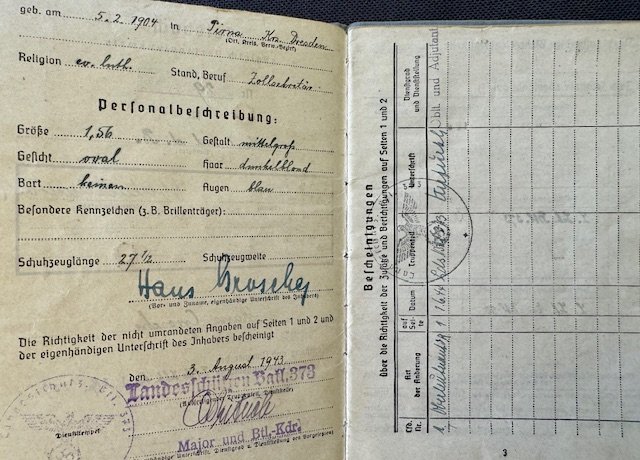 geb. am 5.2.1904 in Pirna Krs. Dresden
(Ort, Kreis, Verw.-Bezirk)
Religion ev. luth. Stand, Beruf Zollsekretär
Personalbeschreibung:
Größe 1,56 Gestalt mittelgroß
Gesicht oval Haar dunkelblond
Bart keinen Augen blau
Besondere Kennzeichen (z. B. Brillenträger):
Schuhzeuglänge 27 1/2 Schuhzeugweite
Hans
(Vor- und Zuname, eigenhändige Unterschrift des Inhabers)
Die Richtigkeit der nicht umrandeten Angaben auf Seiten 1 und 2 und
der eigenhändigen Unterschrift des Inhabers bescheinigt
den 3. August 1943
Landesschützen Batl. 373
Major und Btl.-Kdr.
Dienststempel
Bescheinigungen
über die Richtigkeit der Zusätze und Berichtigungen auf Seiten 1 und 2
Lfd. Nr.
Art der Änderung
auf Seite
Datum
Truppenteil
Unterschrift
Dienstgrad und Dienststellung
1
1
Oblt. und Adjutant
3